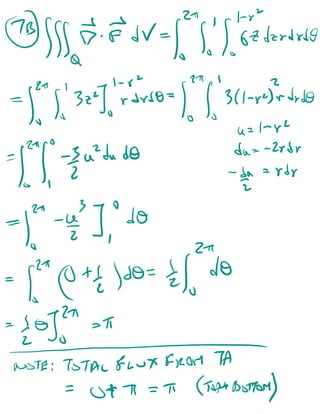 7B) ∭_Q ∇⃗·F⃗ dV = ∫₀^{2π} ∫₀^1 ∫₀^{1-r²} 6z dz r dr dθ
= ∫₀^{2π} ∫₀^1 3z²]₀^{1-r²} r dr dθ = ∫₀^{2π} ∫₀^1 3(1-r²)² r dr dθ
u = 1-r²
du = -2r dr
-du/2 = r dr
= ∫₀^{2π} ∫₁^0 -3/2 u² du dθ
= ∫₀^{2π} -u³/2 ]₁^0 dθ
= ∫₀^{2π} (0 + 1/2) dθ = 1/2 ∫₀^{2π} dθ
= 1/2 θ]₀^{2π} = π
NOTE: TOTAL FLUX FROM 7A
= 0 + π = π (TOP + BOTTOM)